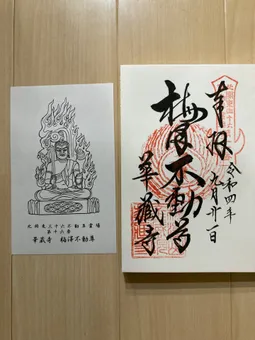 奉拝
令和四年
九月廿一日
梅沢不動尊
華藏寺
北関東三十六不動尊霊場
第十六番
華蔵寺 梅澤不動尊